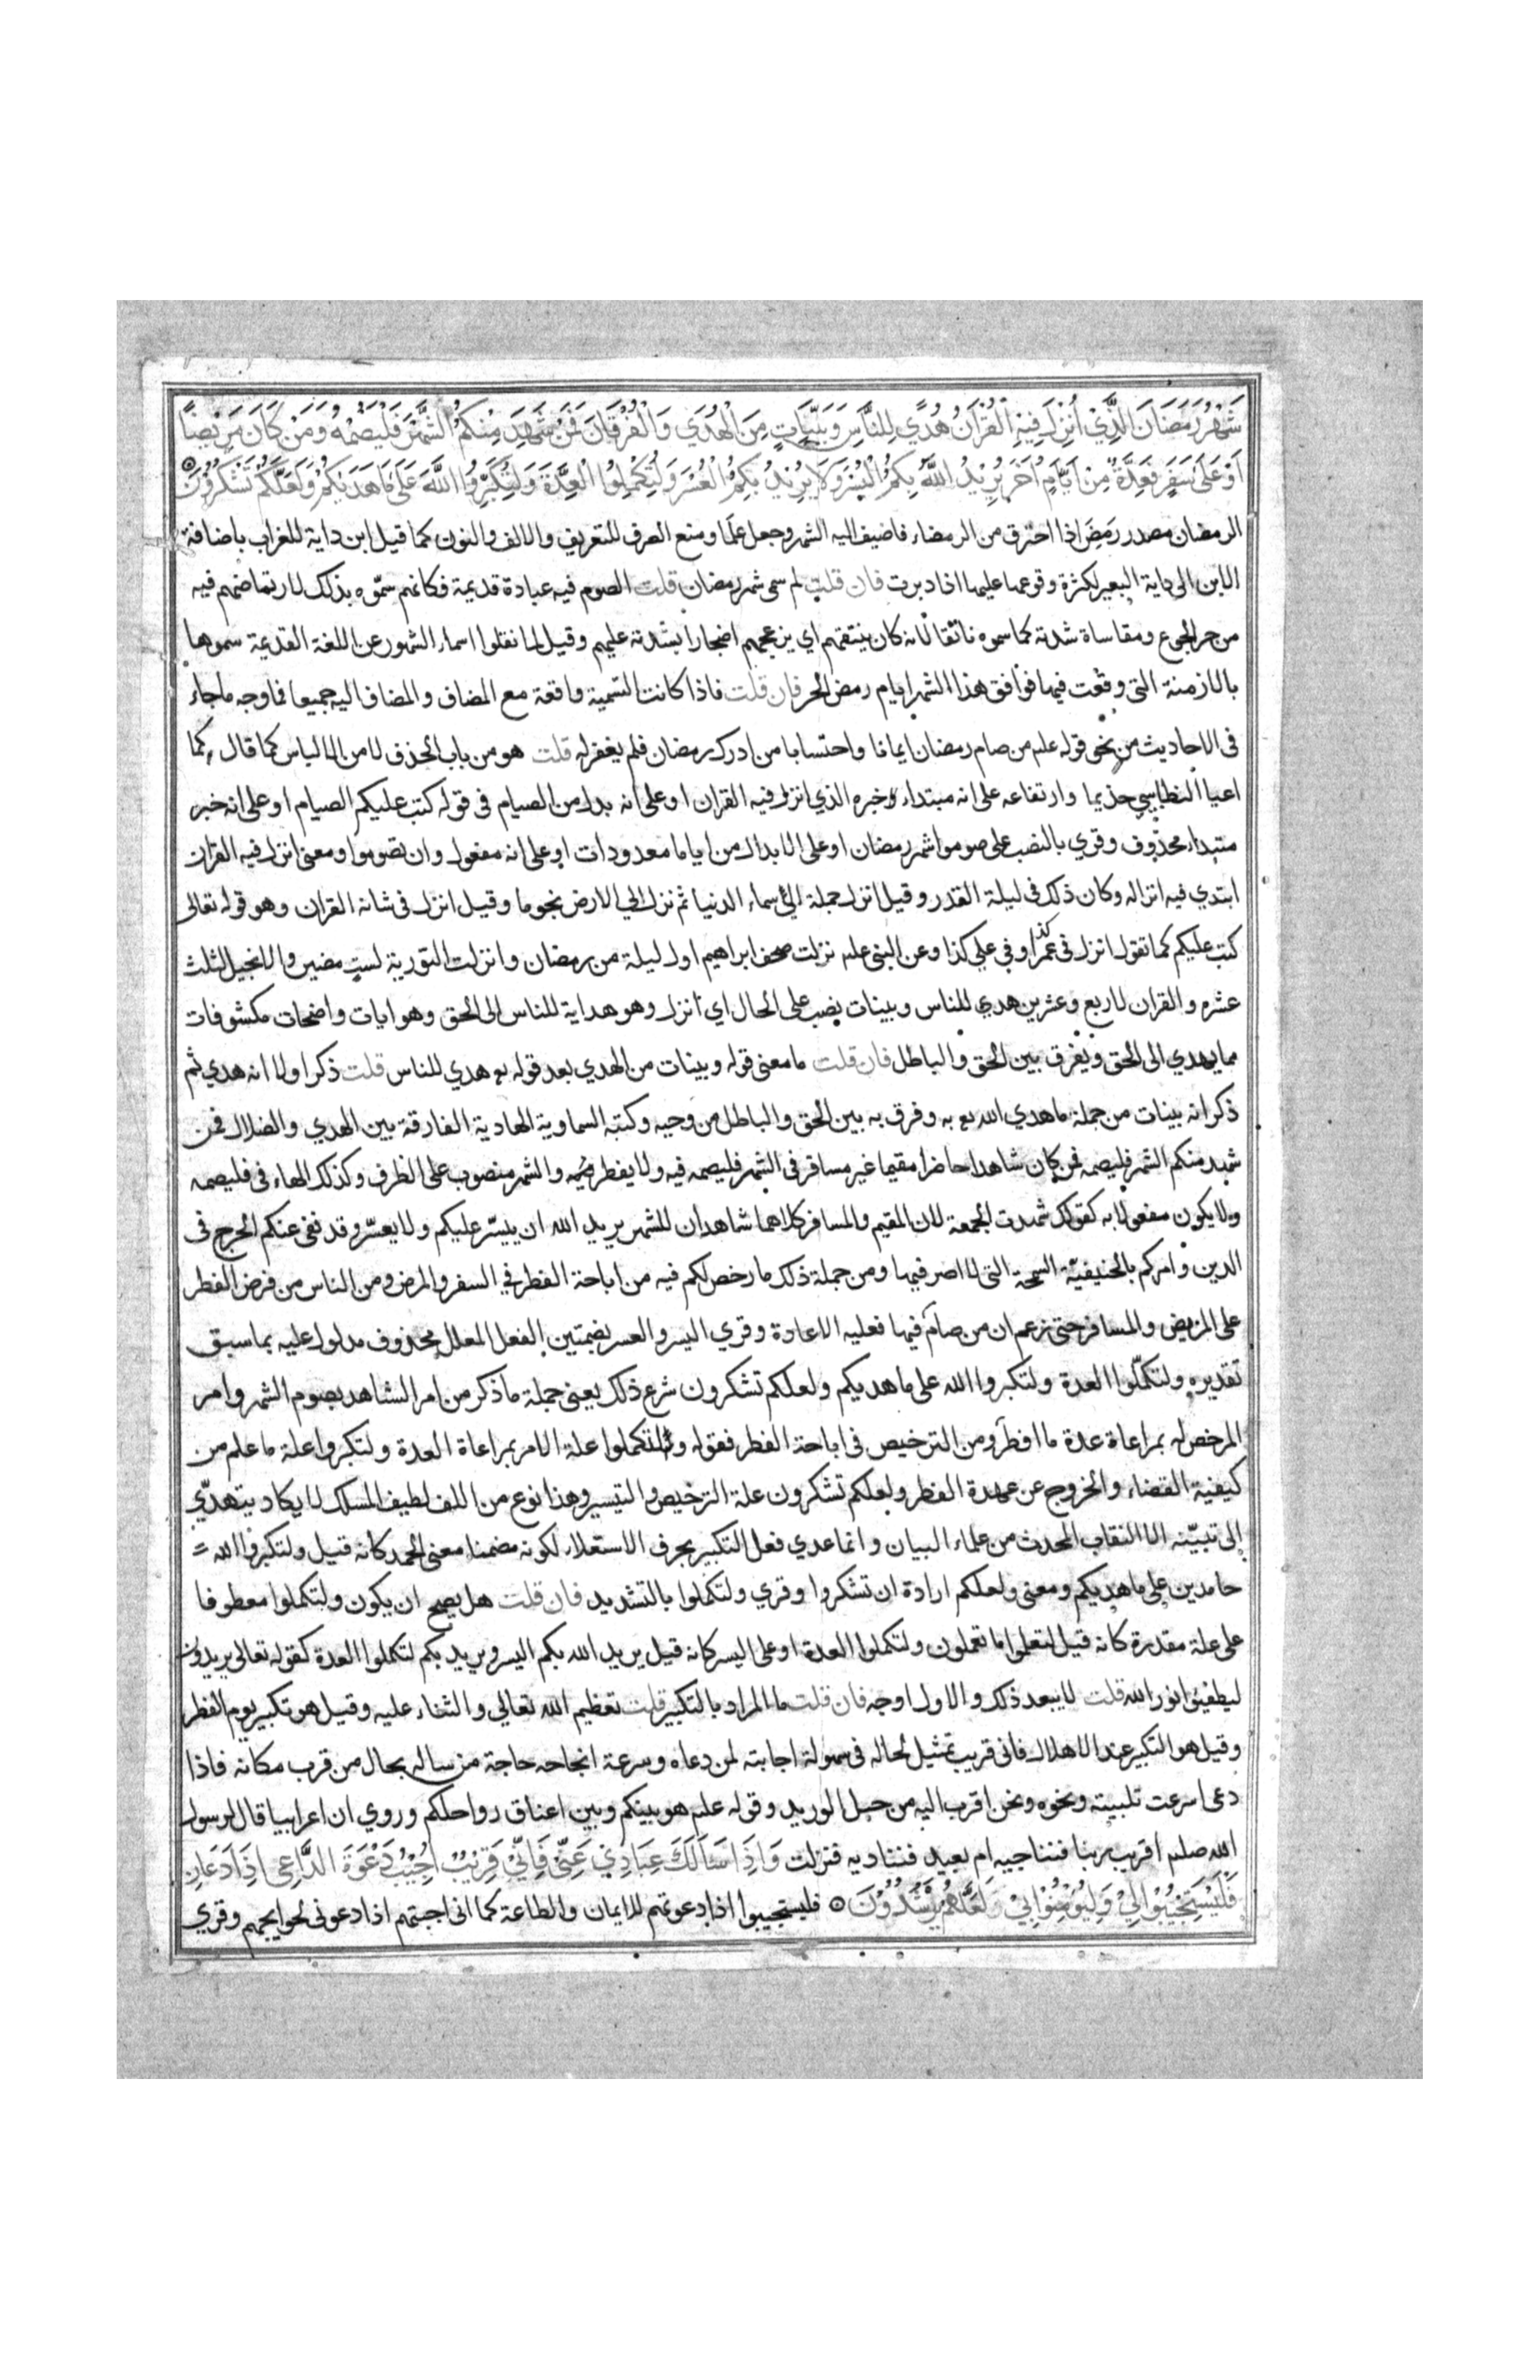 شَهْرُ رَمَضَانَ الَّذِيْ اُنْزِلَ فِيْهِ الْقُرْاَنُ هُدًي لِلنَّاسِ وَبَيِّنَاتٍ مِنَ الْهُدَي وَالْفُرْقَانَ فَمَنْ شَهِدَ مِنْكُمُ الشَّهْرَ فَلْيَصُمْهُ وَمَنْ كَانَ مَرِيْضًا
اَوْ عَلَى سَفَرٍ فَعِدَّةٌ مِنْ اَيَّامٍ اُخَرَ يُرِيْدُ اللَّهُ بِكُمُ الْيُسْرَ وَلَا يُرِيْدُ بِكُمُ الْعُسْرَ وَلِتُكْمِلُوا الْعِدَّةَ وَلِتُكَبِّرُوا اللَّهَ عَلَى مَا هَدَيكُمْ وَلَعَلَّكُمْ تَشْكُرُوْنَ
الرمضان مصدر رَمِضَ اذا احترق من الرمضاء فاضيف اليه الشهر وجعل علَما ومنع الصرف للتعريف والالف والنون كما قيل ابن داية للغراب باضافة
الابن الى داية البعير لكثرة وقوعها عليها اذا دبرت فان قلت لم سمى شهر رمضان قلت الصوم فيه عبادة قديمة فكانهم سمّوه بذلك لارتماضهم فيه
من حر الجوع ومقاساة شدته كما سموه ناتقا لانه كان ينتقهم اي يزعجهم اضجارا بشدته عليهم وقيل لما نقلوا اسماء الشهور عن اللغة القديمة سموها
بالازمنة التي وقعت فيها فوافق هذا الشهر ايام رمض الحر فان قلت فاذا كانت التسمية واقعة مع المضاف والمضاف اليه جميعا فما وجه ماجاء
في الاحاديث من نحو قوله علم من صام رمضان ايمانا واحتسابا من ادرك رمضان فلم يغفر له قلت هو من باب الحذف لامن الالباس كما قال كما
اعيا النطاسي حذيما وارتفاعه على انه مبتداء وخبره الذي انزل فيه القران او على انه بدل من الصيام في قوله كتب عليكم الصيام او على انه خبر
مبتداء محذوف وقري بالنصب على صوموا شهر رمضان او على الابدال من اياما معدودات او على انه مفعول وان تصوموا ومعنى انزل فيه القران
ابتدي فيه انزاله وكان ذلك في ليلة القدر وقيل انزل جملة الى سماء الدنيا ثم نزل الي الارض نجوما وقيل انزل في شانه القران وهو قوله تعالى
كتب عليكم كما تقول انزل في عمر كذا وفي علي كذا وعن النبي علم نزلت صحف ابراهيم اول ليلة من رمضان وانزلت التورية لستٍ مضين والانجيل لثلث
عشره والقران لاربع وعشرين هدي للناس وبينات نصب على الحال اي انزل وهو هداية للناس الى الحق وهو ايات واضحات مكشوفات
مما يهدي الى الحق ويفرق بين الحق والباطل فان قلت ما معنى قوله وبينات من الهدي بعد قوله تع هدي للناس قلت ذكر اولا انه هدي ثم
ذكر انه بينات من جملة ما هدي الله تع به وفرق به بين الحق والباطل من وحيه وكتبه السماوية الهادية الفارقة بين الهدي والضلال فمن
شهد منكم الشهر فليصمه فمن كان شاهدا حاضرا مقيما غير مسافر في الشهر فليصمه فيه ولا يفطر والشهر منصوب على الظرف وكذلك الهاء في فليصمه
ولا يكون مفعولا به كقولك شهدت الجمعة لان المقيم والمسافر كلاهما شاهدان للشهر يريد الله ان ييسّر عليكم ولا يعسّر وقد نفى عنكم الحرج في
الدين وامركم بالحنيفيّة السمحة التي لا اصر فيها ومن جملة ذلك ما رخص لكم فيه من اباحة الفطر في السفر والمرض ومن الناس من فرض الفطر
على المريض والمسافر حتى زعم ان من صام فيها فعليه الاعادة وقري اليسر والعسر بضمتين الفعل المعلل محذوف مدلول عليه بما سبق
تقديره ولتكملوا العدة ولتكبروا الله على ما هديكم ولعلكم تشكرون شرع ذلك يعنى جملة ما ذكر من امر الشاهد بصوم الشهر وامر
المرخص له بمراعاة عدة ما افطر ومن الترخيص في اباحة الفطر فقوله ولتكملوا علة الامر بمراعاة العدة ولتكبروا علة ما علم من
كيفية القضاء والخروج عن عهدة الفطر ولعلكم تشكرون علة الترخيص والتيسير وهذا نوع من اللف لطيف المسلك لا يكاد يتهدّي
الى تبيّنه الا النقاب المحدث من علماء البيان وانما عدي فعل التكبير بحرف الاستعلاء لكونه مضمنا معنى الحمد كانه قيل ولتكبروا الله
حامدين على ما هديكم ومعنى ولعلكم ارادة ان تشكروا وقري ولتكملوا بالتشديد فان قلت هل يصح ان يكون ولتكملوا معطوفا
على علة مقدرة كانه قيل لتعلموا ما تعملون ولتكملوا العدة او على اليسر كانه قيل يريد الله بكم اليسر ويريد بكم لتكملوا العدة كقوله تعالى يريدون
ليطفئوا نور الله قلت لا يبعد ذلك والاول اوجه فان قلت ما المراد بالتكبير قلت تعظيم الله تعالي والثناء عليه وقيل هو تكبير يوم الفطر
وقيل هو التكبير عند الاهلال فاني قريب تمثيل لحاله في سهولة اجابته لمن دعاه وسرعة انجاحه حاجة من ساله بحال من قرب مكانه فاذا
دعى اسرعت تلبيته ونحوه ونحن اقرب اليه من حبل الوريد وقوله علم هو بينكم وبين اعناق رواحلكم وروي ان اعرابيا قال لرسول
الله صلم اقريب ربنا فنناجيه ام بعيد فنناديه فنزلت وَاِذَا سَاَلَكَ عِبَادِيْ عَنِّيْ فَاِنِّيْ قَرِيْبٌ اُجِيْبُ دَعْوَةَ الدَّاعِى اِذَا دَعَانِ
فَلْيَسْتَجِيْبُوْا لِيْ وَلْيُؤْمِنُوْا بِيْ وَلَعَلَّهُمْ يَرْشُدُوْنَ فليستجيبوا اذا دعوتهم للايمان والطاعة كما اني اجبتهم اذا دعوني لحوايجهم وقري